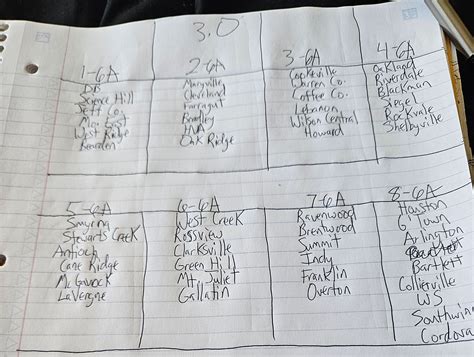 3.0
1-6A
DB
Science Hill
Jeff Co.
Mo East
West Ridge
Bearden
2-6A
Maryville
Cleveland
Farragut
Bradley
HVA
Oak Ridge
3-6A
Cookeville
Warren Co.
Coffee Co.
Lebanon
Wilson Central
Howard
4-6A
Oakland
Riverdale
Blackman
Siegel
Rockvale
Shelbyville
5-6A
Smyrna
Stewarts Creek
Antioch
Cane Ridge
McGavock
LaVergne
6-6A
West Creek
Rossview
Clarksville
Green Hill
Mt. Juliet
Gallatin
7-6A
Ravenwood
Brentwood
Summit
Indy
Franklin
Overton
8-6A
Houston
G Town
Arlington
Bartlett
Collierville
WS
Southwind
Cordova